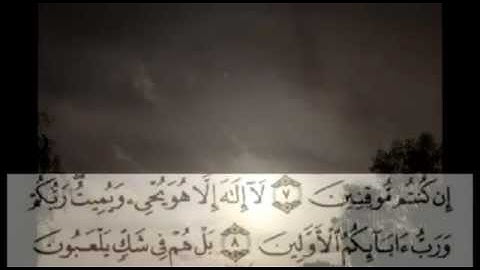 إِن كُنتُم مُّوقِنِينَ ٧ لَآ إِلَٰهَ إِلَّا هُوَ يُحْيِۦ وَيُمِيتُ ۖ رَبُّكُمْ
وَرَبُّ ءَابَآئِكُمُ ٱلْأَوَّلِينَ ٨ بَلْ هُمْ فِى شَكٍّ يَلْعَبُونَ